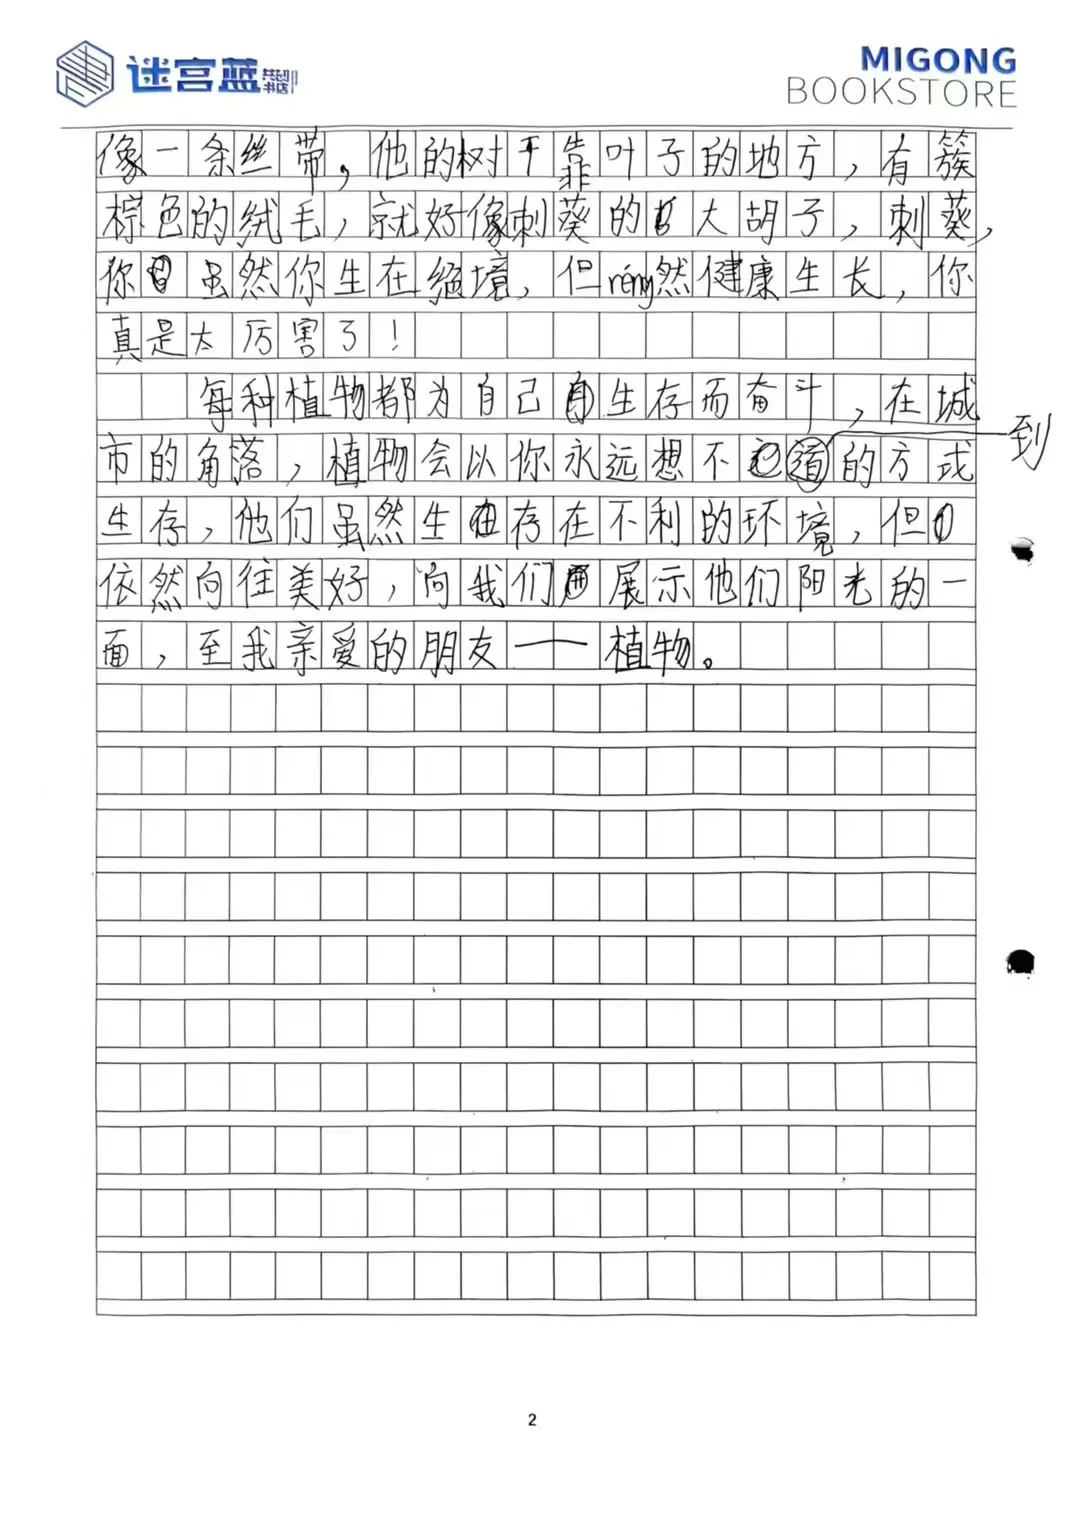 迷宫蓝
MIGONG
BOOKSTORE
像一条丝带，他的树干靠叶子的地方，有簇
棕色的绒毛，就好像刺葵的大胡子，刺葵，
你虽然你生在绝境，但réng然健康生长，你
真是太厉害了！
每种植物都为自己生存而奋斗，在城
市的角落，植物会以你永远想不到的方式
生存，他们虽然生存在不利的环境，但
依然向往美好，向我们展示他们阳光的一
面，至我亲爱的朋友——植物。
2